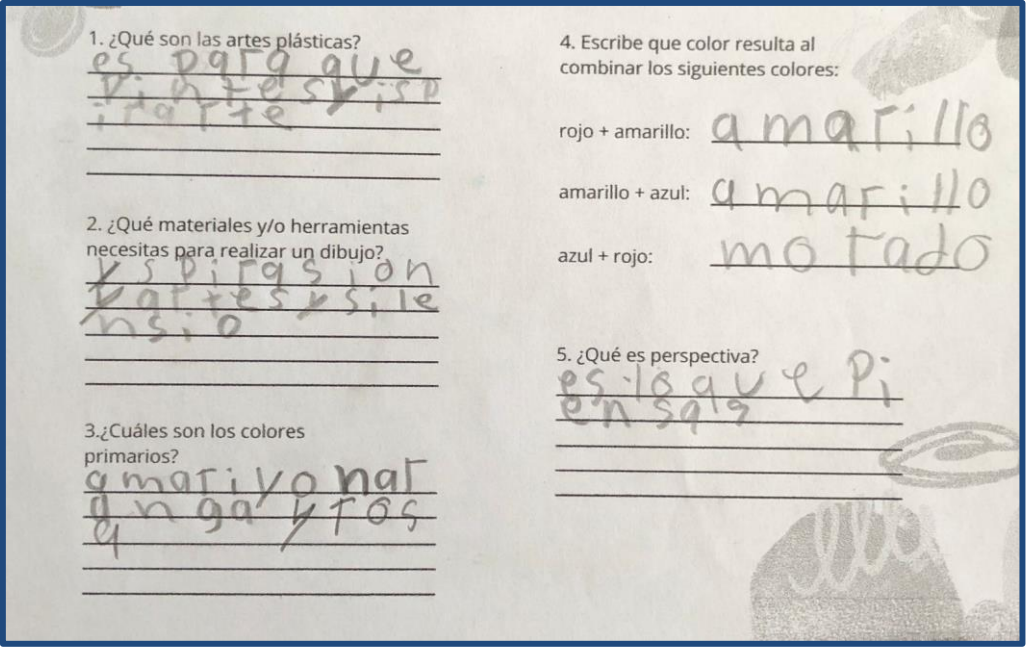 1. ¿Qué son las artes plásticas?
es para que
pintes y isp
irarte
2. ¿Qué materiales y/o herramientas
necesitas para realizar un dibujo?
yspirasion
y artes y sile
nsio
3.¿Cuáles son los colores
primarios?
amariyo nar
anga y ros
a
4. Escribe que color resulta al
combinar los siguientes colores:
rojo + amarillo: amarillo
amarillo + azul: amarillo
azul + rojo: morado
5. ¿Qué es perspectiva?
es lo que pi
ensas